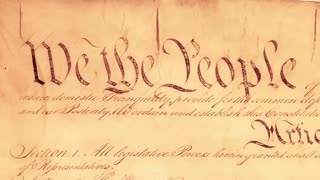 We the People of
insure domestic Tranquility, provide for the common
and our Posterity, do ordain and establish this Constitution
Artic
Section. 1. All legislative Powers herein granted shall
of Representatives.